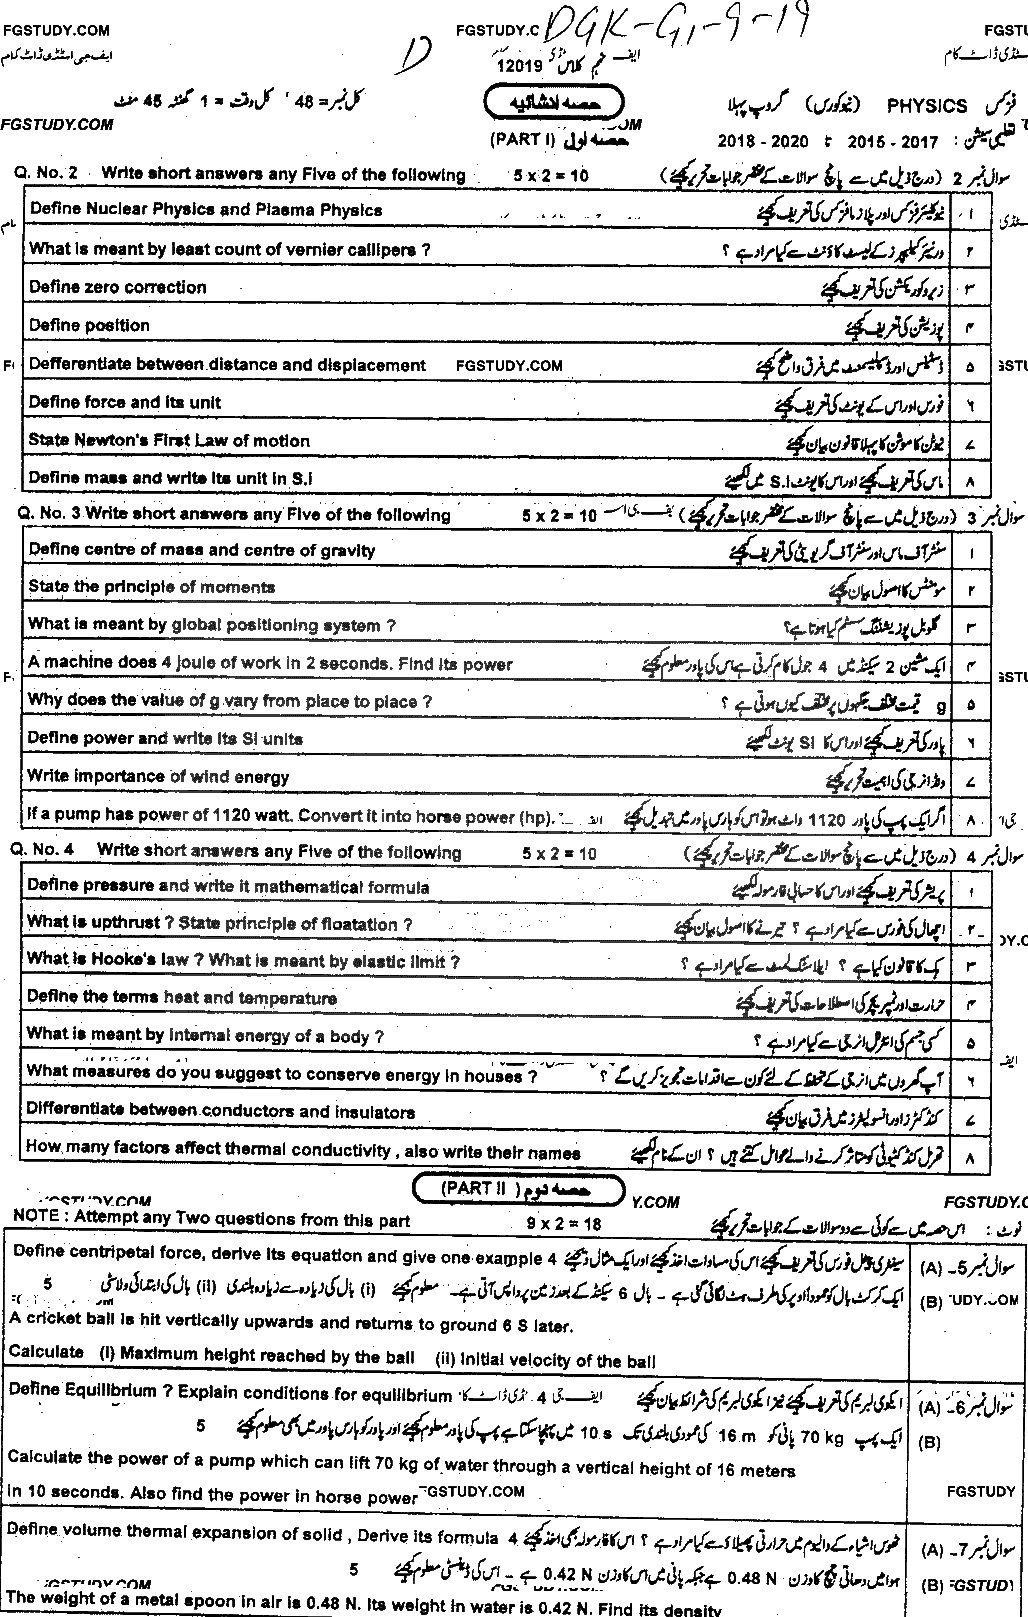 FGSTUDY.COM FGSTUDY.C DGK-G1-9-19 FGSTU
ایف جی اسٹڈی ڈاٹ کام D 12019 نہم کلاس سٹڈی ایف سٹڈی ڈاٹ کام
کل نمبر = 48 ' کل وقت = 1 گھنٹہ 45 منٹ حصہ انشائیہ فزکس PHYSICS (نیوکورس) گروپ پہلا
FGSTUDY.COM .COM
حصہ اول (PART I) تعلیمی سیشن : 2015 - 2017 تا 2018 - 2020
Q. No. 2 Write short answers any Five of the following 5 x 2 = 10 سوال نمبر 2 (درج ذیل میں سے پانچ سوالات کے مختصر جوابات تحریر کیجئے)
Define Nuclear Physics and Plasma Physics نیوکلیئر فزکس اور پلازما فزکس کی تعریف کیجئے ۱
What is meant by least count of vernier callipers ? ورنیئر کیلیپرز کے لیسٹ کاؤنٹ سے کیا مراد ہے ؟ ۲
Define zero correction زیرو کوریکشن کی تعریف کیجئے ۳
Define position پوزیشن کی تعریف کیجئے ۴
Defferentiate between distance and displacement FGSTUDY.COM ڈسٹینس اور ڈسپلیسمنٹ میں فرق واضح کیجئے ۵
Define force and its unit فورس اور اس کے یونٹ کی تعریف کیجئے ۶
State Newton's First Law of motion نیوٹن کا موشن کا پہلا قانون بیان کیجئے ۷
Define mass and write its unit in S.I ماس کی تعریف کیجئے اور اس کا یونٹ S.I میں لکھیئے ۸
Q. No. 3 Write short answers any Five of the following 5 x 2 = 10 سوال نمبر 3 (درج ذیل میں سے پانچ سوالات کے مختصر جوابات تحریر کیجئے)
Define centre of mass and centre of gravity سنٹر آف ماس اور سنٹر آف گریویٹی کی تعریف کیجئے ۱
State the principle of moments مومنٹس کا اصول بیان کیجئے ۲
What is meant by global positioning system ? گلوبل پوزیشننگ سسٹم کیا ہوتا ہے؟ ۳
A machine does 4 joule of work in 2 seconds. Find its power ایک مشین 2 سیکنڈ میں 4 جول کام کرتی ہے اس کی پاور معلوم کیجئے ۴
Why does the value of g vary from place to place ? g قیمت مختلف جگہوں پر مختلف کیوں ہوتی ہے ؟ ۵
Define power and write its SI units پاور کی تعریف کیجئے اور اس کا SI یونٹ لکھیئے ۶
Write importance of wind energy ونڈ انرجی کی اہمیت تحریر کیجئے ۷
If a pump has power of 1120 watt. Convert it into horse power (hp). اگر ایک پمپ کی پاور 1120 واٹ ہو تو اس کو ہارس پاور میں تبدیل کیجئے ۸
Q. No. 4 Write short answers any Five of the following 5 x 2 = 10 سوال نمبر 4 (درج ذیل میں سے پانچ سوالات کے مختصر جوابات تحریر کیجئے)
Define pressure and write it mathematical formula پریشر کی تعریف کیجئے اور اس کا حسابی فارمولہ لکھیئے ۱
What is upthrust ? State principle of floatation ? اچھال کی فورس سے کیا مراد ہے ؟ تیرنے کا اصول بیان کیجئے ۲
What is Hooke's law ? What is meant by elastic limit ? ہک کا قانون کیا ہے ؟ ایلاسٹک لمٹ سے کیا مراد ہے ؟ ۳
Define the terms heat and temperature حرارت اور ٹمپریچر کی اصطلاحات کی تعریف کیجئے ۴
What is meant by internal energy of a body ? کسی جسم کی انٹرنل انرجی سے کیا مراد ہے ؟ ۵
What measures do you suggest to conserve energy in houses ? آپ گھروں میں انرجی کے تحفظ کے لئے کون سے اقدامات تجویز کریں گے ؟ ۶
Differentiate between conductors and insulators کنڈکٹرز اور انسولیٹرز میں فرق بیان کیجئے ۷
How many factors affect thermal conductivity , also write their names تھرمل کنڈکٹیویٹی کو متاثر کرنے والے عوامل کتنے ہیں ؟ ان کے نام لکھیئے ۸
حصہ دوم (PART II) Y.COM FGSTUDY.C
NOTE : Attempt any Two questions from this part 9 x 2 = 18 نوٹ : اس حصہ میں سے کوئی سے دو سوالات کے جوابات تحریر کیجئے
Define centripetal force, derive its equation and give one example 4 سینٹری پیٹل فورس کی تعریف کیجئے اس کی مساوات اخذ کیجئے اور ایک مثال دیجئے سوال نمبر 5۔ (A)
5 ایک کرکٹ بال کو عموداً اوپر کی طرف ہٹ لگائی گئی ہے - بال 6 سیکنڈ کے بعد زمین پر واپس آتی ہے - معلوم کیجئے (i) بال کی زیادہ سے زیادہ بلندی (ii) بال کی ابتدائی ولاسٹی (B) UDY.COM
A cricket ball is hit vertically upwards and returns to ground 6 S later.
Calculate (i) Maximum height reached by the ball (ii) Initial velocity of the ball
Define Equilibrium ? Explain conditions for equilibrium 4 ایکوی لبریم کی تعریف کیجئے نیز ایکوی لبریم کی شرائط بیان کیجئے سوال نمبر 6۔ (A)
5 ایک پمپ 70 kg پانی کو 16 m کی عمودی بلندی تک 10 s میں پہنچا سکتا ہے پمپ کی پاور معلوم کیجئے اور پاور کو ہارس پاور میں بھی معلوم کیجئے (B)
Calculate the power of a pump which can lift 70 kg of water through a vertical height of 16 meters
in 10 seconds. Also find the power in horse power FGSTUDY.COM FGSTUDY
Define volume thermal expansion of solid , Derive its formula 4 ٹھوس اشیاء کے والیوم میں حرارتی پھیلاؤ سے کیا مراد ہے ؟ اس کا فارمولہ بھی اخذ کیجئے سوال نمبر 7۔ (A)
5 ہوا میں دھاتی چمچ کا وزن 0.48 N ہے جبکہ پانی میں اس کا وزن 0.42 N ہے - اس کی ڈینسٹی معلوم کیجئے (B)
The weight of a metal spoon in air is 0.48 N. Its weight in water is 0.42 N. Find its density